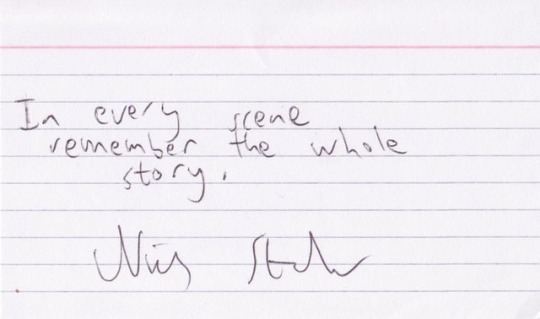 In every scene
remember the whole
story.